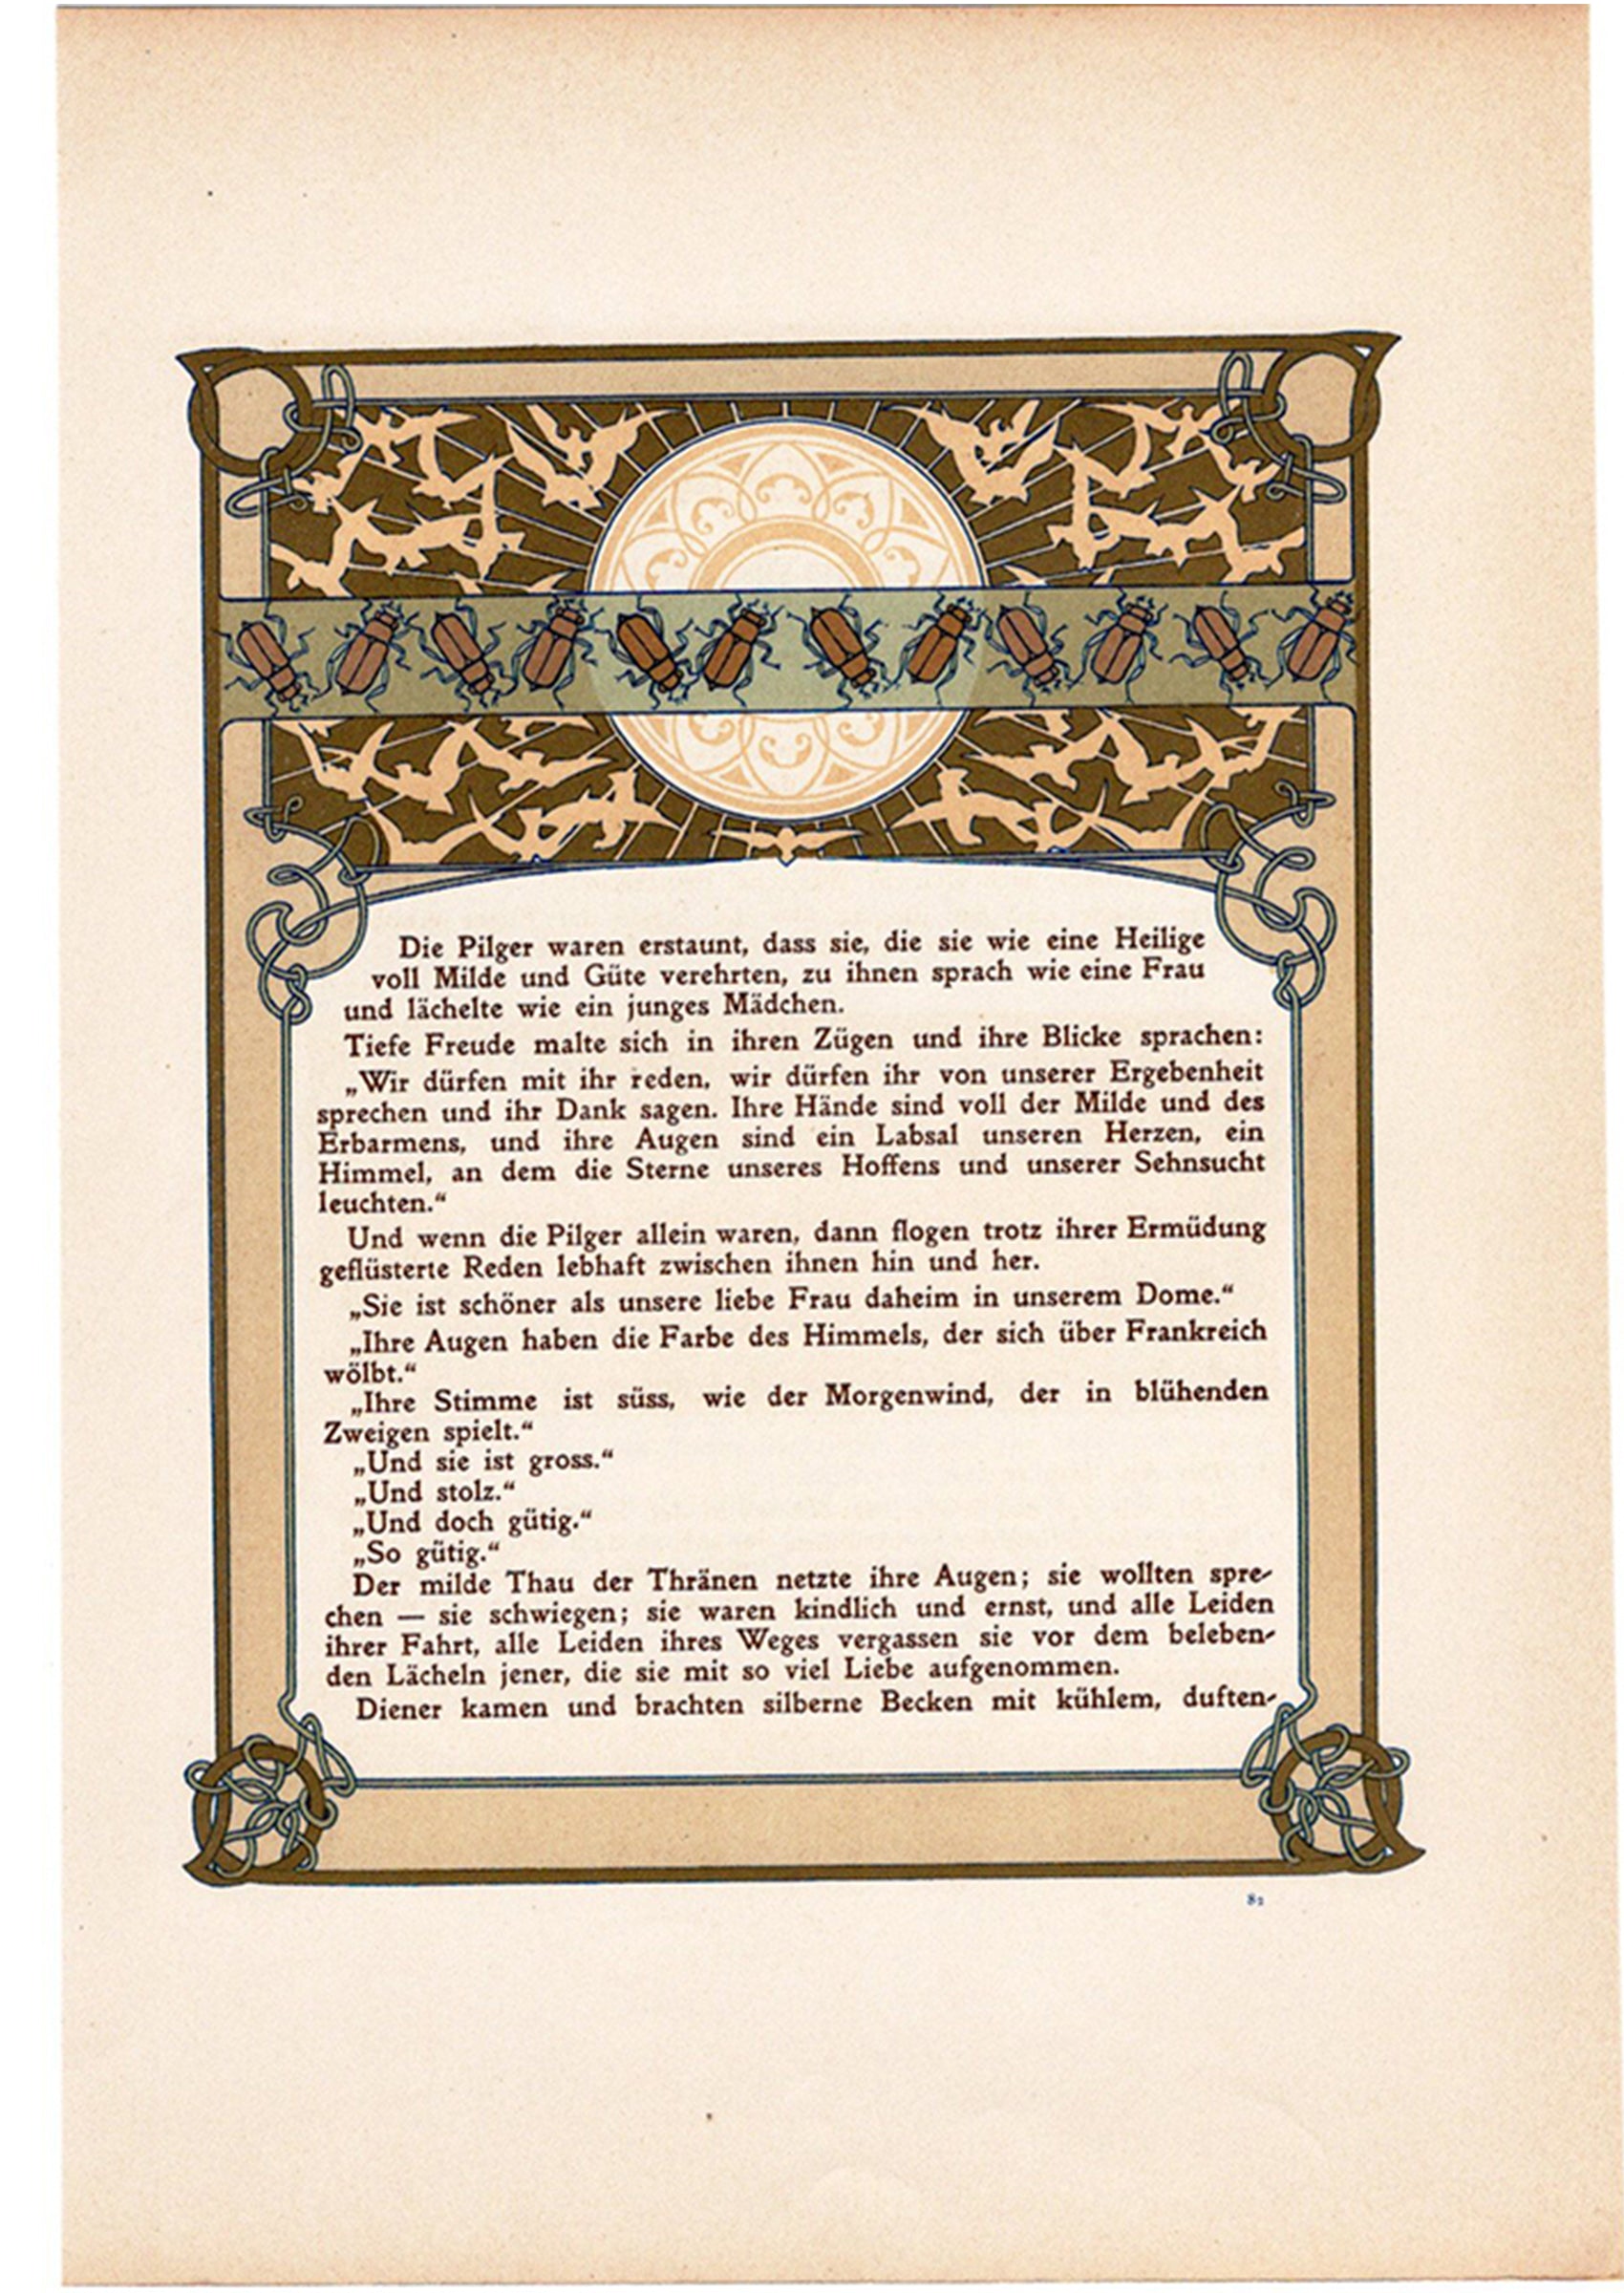 Die Pilger waren erstaunt, dass sie, die sie wie eine Heilige
voll Milde und Güte verehrten, zu ihnen sprach wie eine Frau
und lächelte wie ein junges Mädchen.
Tiefe Freude malte sich in ihren Zügen und ihre Blicke sprachen:
„Wir dürfen mit ihr reden, wir dürfen ihr von unserer Ergebenheit
sprechen und ihr Dank sagen. Ihre Hände sind voll der Milde und des
Erbarmens, und ihre Augen sind ein Labsal unseren Herzen, ein
Himmel, an dem die Sterne unseres Hoffens und unserer Sehnsucht
leuchten.“
Und wenn die Pilger allein waren, dann flogen trotz ihrer Ermüdung
geflüsterte Reden lebhaft zwischen ihnen hin und her.
„Sie ist schöner als unsere liebe Frau daheim in unserem Dome.“
„Ihre Augen haben die Farbe des Himmels, der sich über Frankreich
wölbt.“
„Ihre Stimme ist süss, wie der Morgenwind, der in blühenden
Zweigen spielt.“
„Und sie ist gross.“
„Und stolz.“
„Und doch gütig.“
„So gütig.“
Der milde Thau der Thränen netzte ihre Augen; sie wollten spre-
chen — sie schwiegen; sie waren kindlich und ernst, und alle Leiden
ihrer Fahrt, alle Leiden ihres Weges vergassen sie vor dem beleben-
den Lächeln jener, die sie mit so viel Liebe aufgenommen.
Diener kamen und brachten silberne Becken mit kühlem, duften-
82